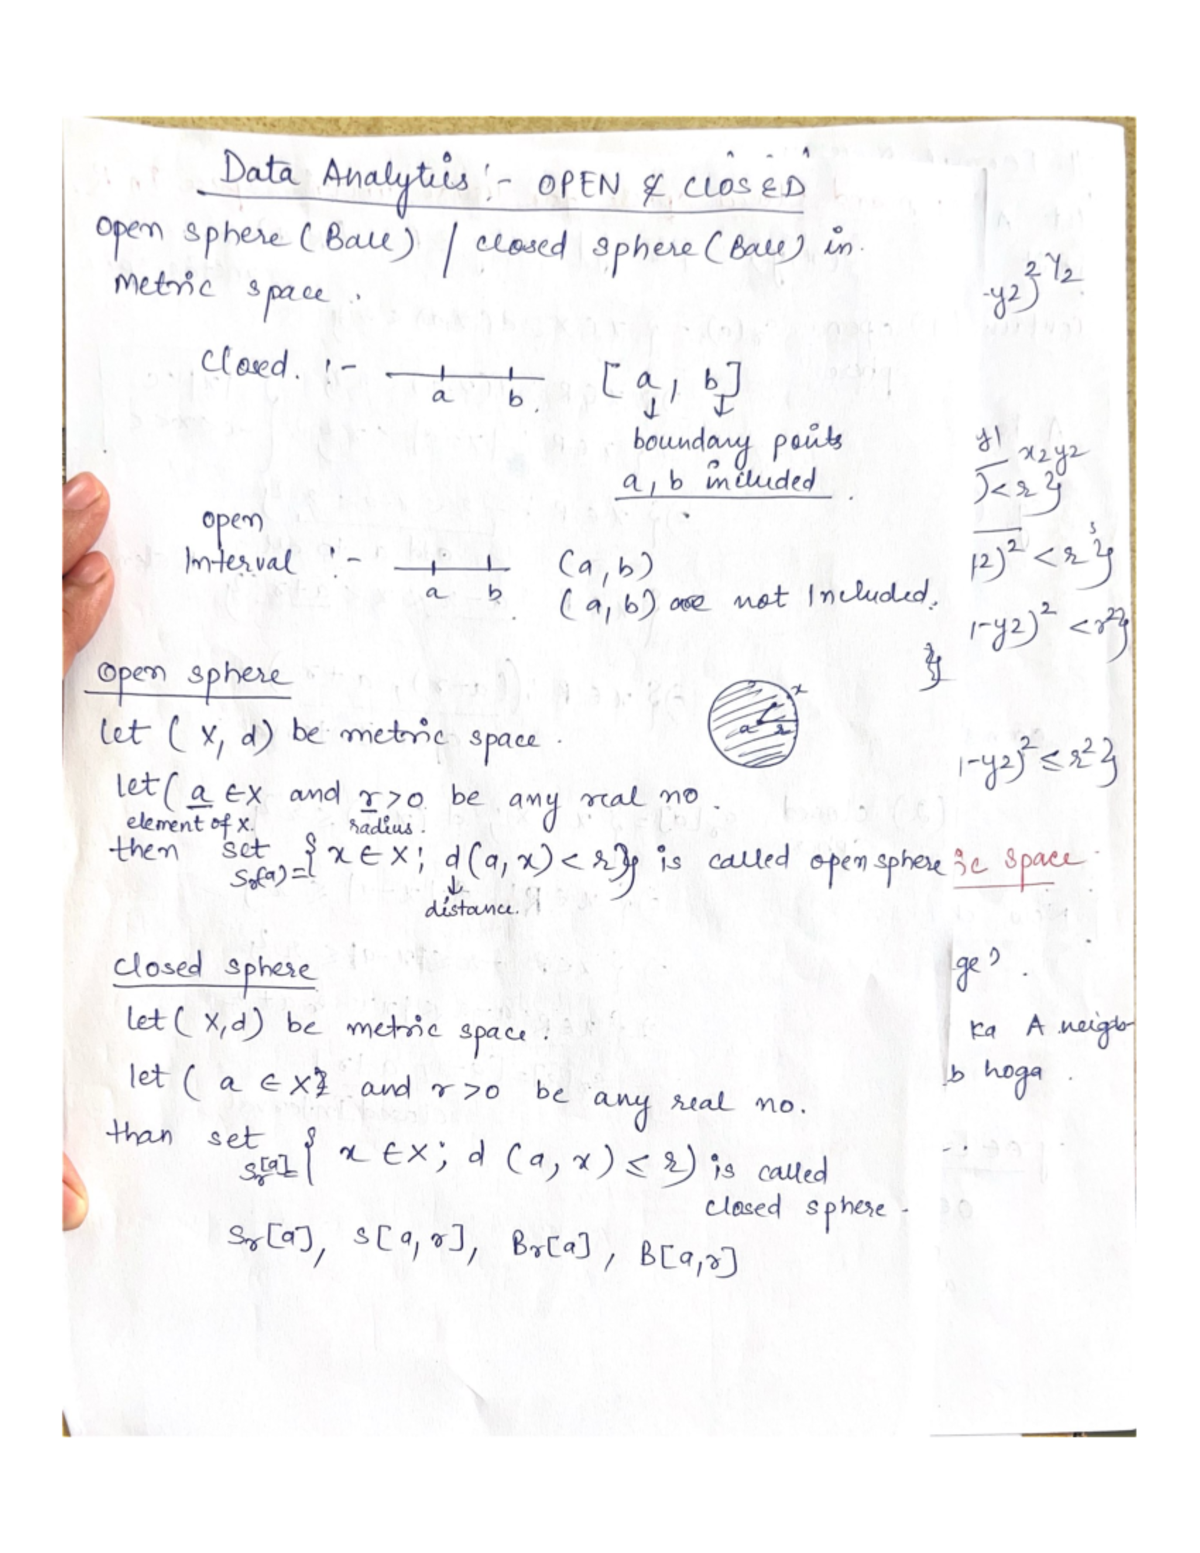 Data Analytics :- OPEN & CLOSED
Open sphere (Ball) / closed sphere (Ball) in
metric space.
Closed. :- a b [a, b]
boundary points
a, b included.
open
Interval :- a b (a, b)
(a, b) are not Included.
Open sphere
let (X, d) be metric space.
a r x
let (a ∈ X and r > 0 be any real no.
element of X. radius.
then set Sr(a) = { x ∈ X; d(a, x) < r} is called open sphere
distance.
closed sphere
let (X, d) be metric space.
let ( a ∈ X} and r > 0 be any real no.
than set Sr[a] = { x ∈ X; d (a, x) ≤ r) is called
closed sphere.
Sr[a], S[a, r], Br[a], B[a, r]
-y2)² ½
y1
x2y2
)< r}
12)² < r}
1-y2)² < r²}
}
1-y2)² ≤ r²}
ic space
ge ?
ka A neigb-
b hoga.